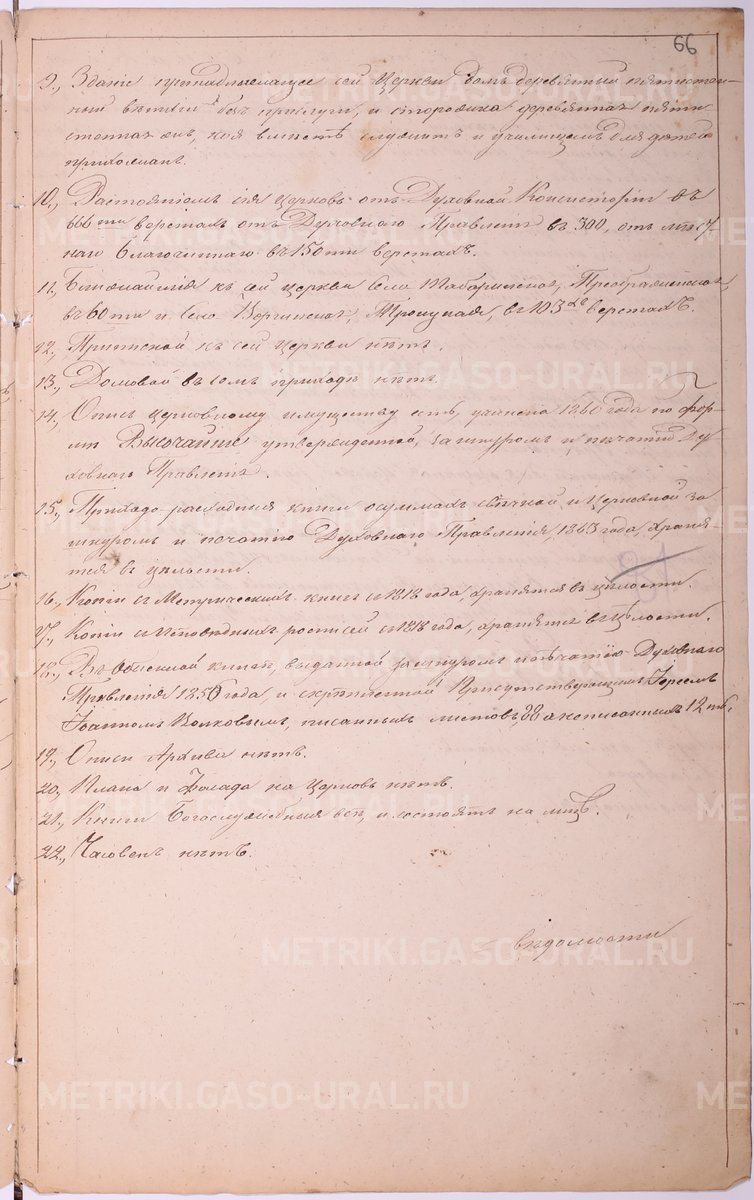 66
9., Зданіе принадлежащее сей Церкви домъ деревянный пятистен-
ный ветхій безъ прислуги, и сторожка деревянная пяти
стенная же, коя вместѣ служитъ и училищемъ для детей
прихожанъ.
10., Разстояніемъ сія Церковь отъ Духовной Консисторіи въ
666ти верстахъ отъ Духовнаго Правленія въ 300, отъ мѣст
наго благочиннаго въ 150ти верстахъ.
11., Ближайшія къ сей Церкви Села Табаринское, Преображенская,
въ 60ти и Села Троицкая, въ 103хъ верстахъ.
12., Приписной къ сей Церкви нѣтъ.
13., Домовой въ семъ приходѣ нѣтъ.
14., Опись церковному имуществу есть, учинена 1860 года по фор-
мѣ Высочайше утвержденной, за шнуромъ и печатью Ду
ховнаго Правленія.
15., Приходо расходныя книги о суммахъ свѣчной и Церковной за
шнуромъ и печатію Духовнаго Правленія, 1863 года, хранят
тся въ цѣлости.
16., Копіи съ Метрическихъ книгъ съ 1818 года, хранятся въ цѣлости.
17., Копіи съ исповѣдныхъ росписей съ 1818 года, хранятся въ цѣлости.
18., Въ Обыскной книгѣ, выданной за шнуромъ и печатію Духовнаго
Правленія 1856 года, и скрѣпленной Присутствующимъ Іереемъ
Іоанномъ Волковымъ, писанныхъ листовъ, 38 а неписанныхъ 12ть.
19., Описи Архива нѣтъ.
20., Плана и Фасада на Церковь нѣтъ.
21., Книги Богослужебныя всѣ, и состоятъ на лицѣ.
22., Часовенъ нѣтъ.
вѣдомости
METRIKI.GASO-URAL.RU
METRIKI.GASO-URAL.RU